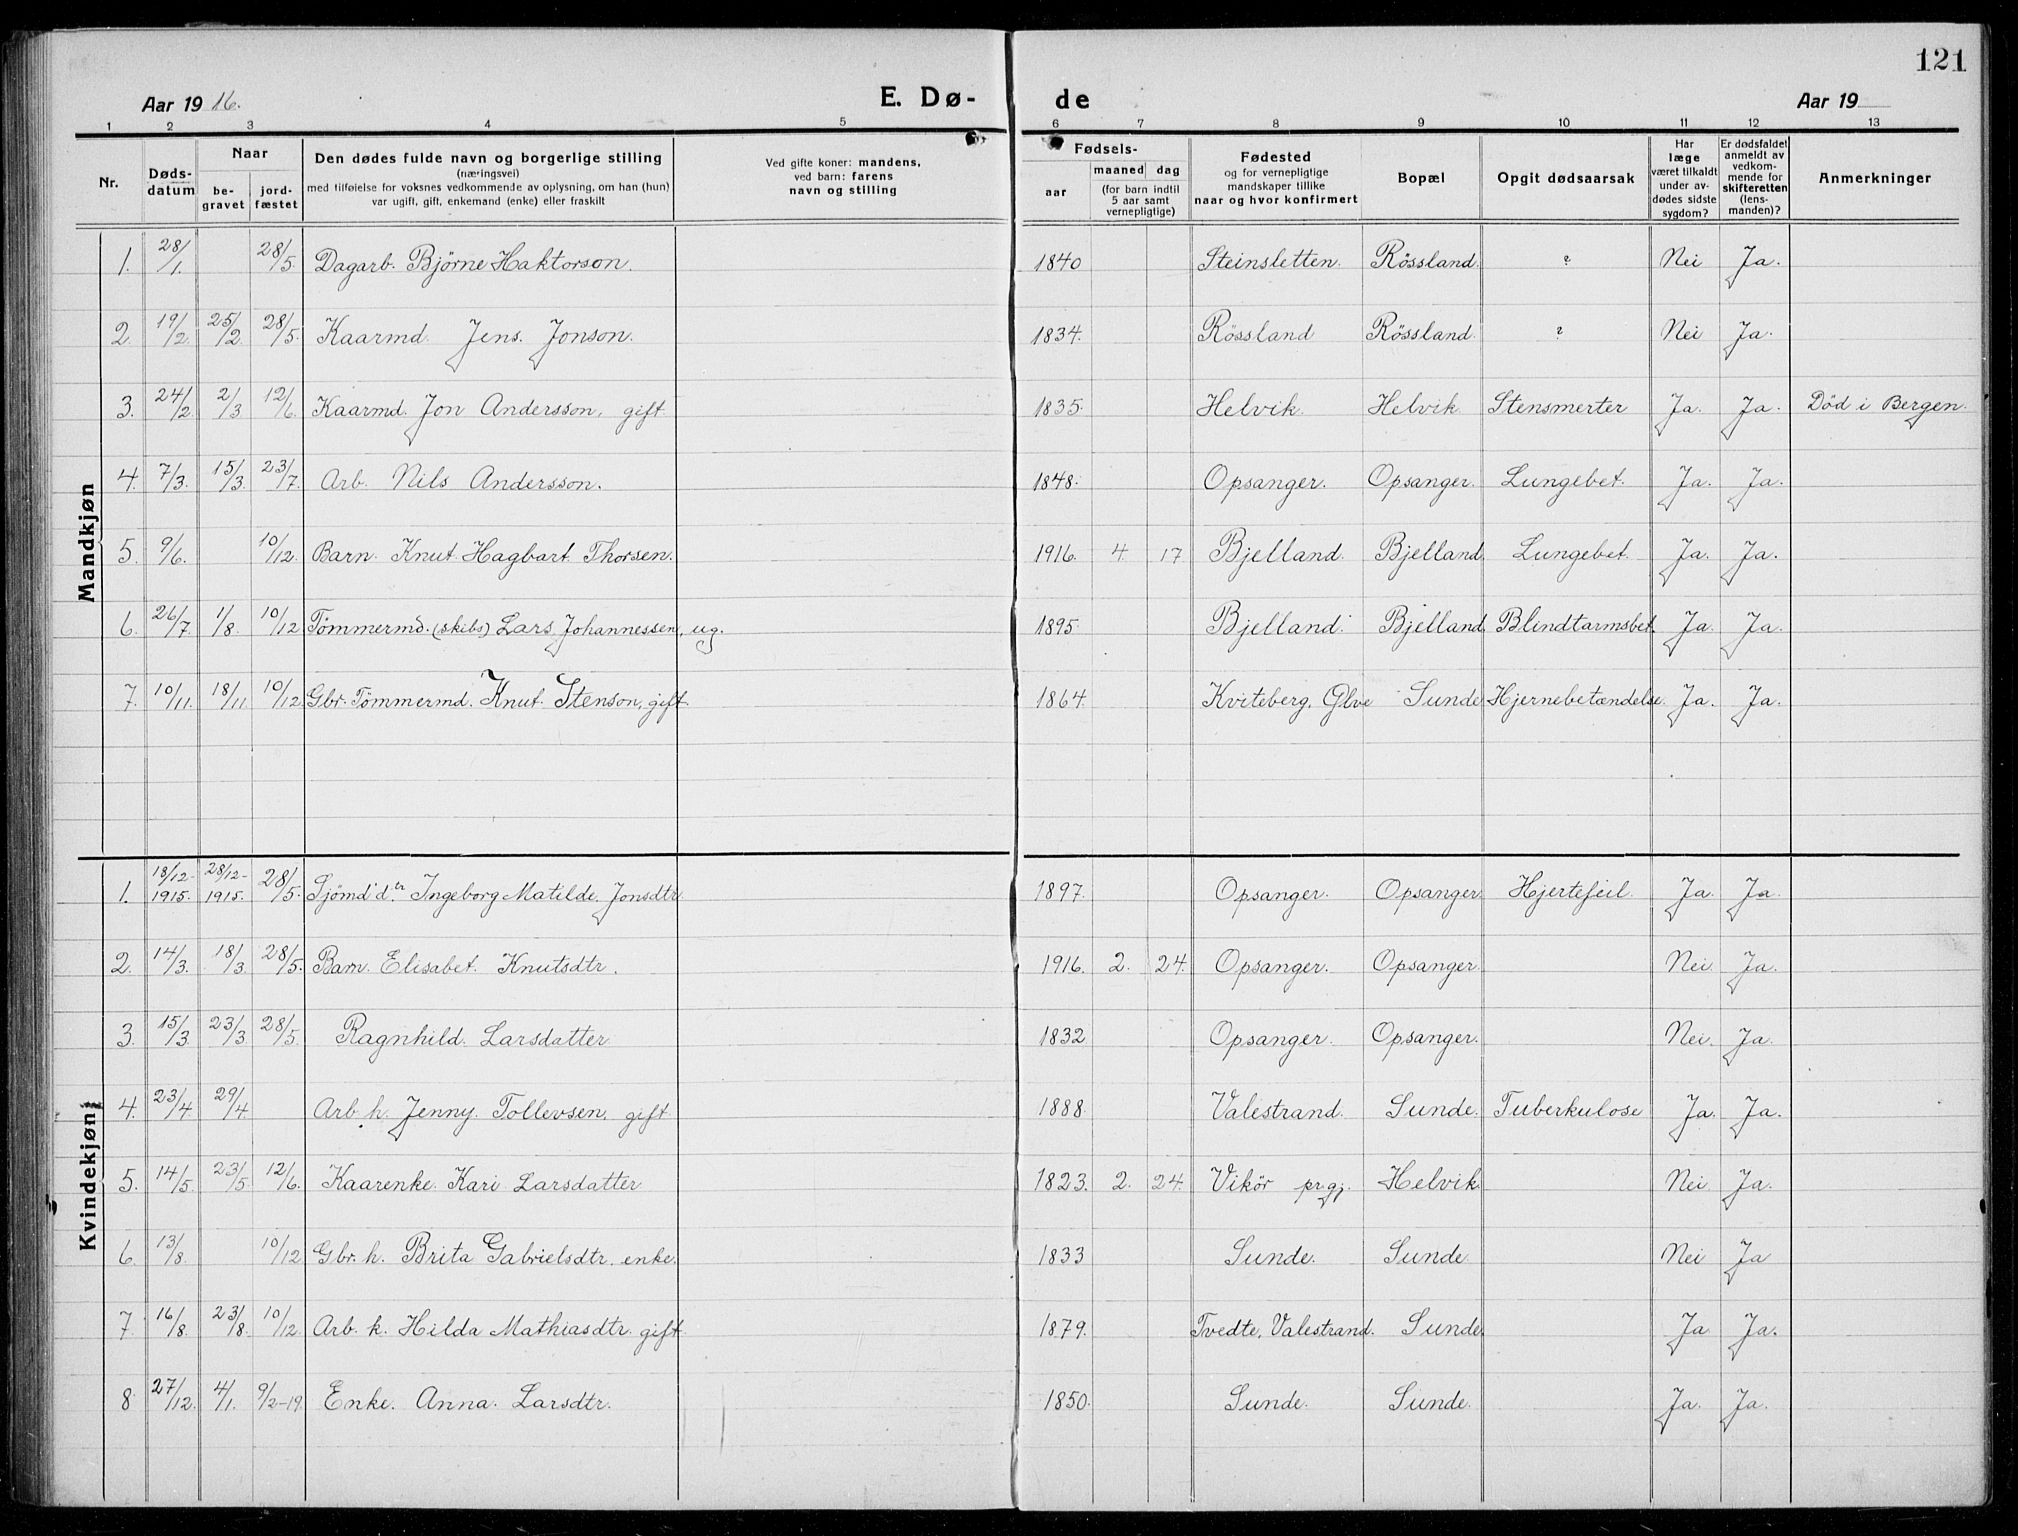 121
Aar 19 16.
E. Dø-
de
Aar 19
1 2 3 4 5 6 7 8 9 10 11 12 13
Nr.
Døds-
datum
Naar
be-
gravet
jord-
fæstet
Den dødes fulde navn og borgerlige stilling
(næringsvei)
med tilføielse for voksnes vedkommende av oplysning, om han (hun)
var ugift, gift, enkemand (enke) eller fraskilt
Ved gifte koner: mandens,
ved barn: farens
navn og stilling
Fødsels-
aar
maaned dag
(for barn indtil
5 aar samt
vernepligtige)
Fødested
og for vernepligtige
mandskaper tillike
naar og hvor konfirmert
Bopæl
Opgit dødsaarsak
Har
læge
været tilkaldt
under av-
dødes sidste
sygdom?
Er dødsfaldet
anmeldt av
vedkom-
mende for
skifteretten
(lens-
manden)?
Anmerkninger
Mandkjøn
1. 28/1. 28/5. Dagarb. Bjørne Haktorson. 1840 Steinsletten. Røssland. ? Nei Ja.
2. 19/2. 25/2. 28/5. Kaarmd. Jens. Jonson. 1834. Røssland Røssland. ? Nei Ja.
3. 24/2. 2/3 12/6. Kaarmd. Jon Andersson, gift 1835. Helvik. Helvik. Stensmerter Ja. Ja. Død i Bergen.
4. 7/3. 15/3. 23/7. Arb. Nils Andersson. 1848. Opsanger. Opsanger. Lungebet. Ja. Ja.
5. 9/6. 10/12. Barn. Knut Hagbart Thorsen. 1916. 4. 17 Bjelland. Bjelland. Lungebet. Ja. Ja.
6. 26/7. 1/8. 10/12 Tømmermd. (skibs) Lars Johannessen, ug. 1895. Bjelland. Bjelland. Blindtarmsbet. Ja. Ja.
7. 10/11. 18/11 10/12 Gbr. Tømmermd. Knut. Stenson, gift. 1864. Kviteberg, Ølve Sunde Hjernebetændelse. Ja. Ja.
Kvindekjøn
1. 18/12-1915. 28/12-1915. 28/5. Sjømd's d.tr Ingeborg Matilde Jonsdtr. 1897. Opsanger. Opsanger. Hjertefeil. Ja. Ja.
2. 14/3. 18/3 28/5. Barn. Elisabet. Knutsdtr. 1916. 2. 24. Opsanger. Opsanger. Nei. Ja.
3. 15/3. 23/3 28/5. Ragnhild. Larsdatter 1832 Opsanger. Opsanger. Nei. Ja.
4. 23/4 29/4 Arb. h. Jenny. Tollevsen, gift 1888 Valestrand. Sunde. Tuberkulose Ja. Ja.
5. 14/5 23/5. 12/6. Kaarenke. Kari Larsdatter 1823. 2. 24. Vikør prgj. Helvik. Nei Ja.
6. 13/8. 10/12 Gbr. h. Brita Gabrielsdtr. enke. 1833 Sunde. Sunde Nei Ja
7. 16/8. 23/8. 10/12. Arb. k. Hilda Mathiasdtr. gift 1879. Tvedte, Valestrand. Sunde. Ja Ja.
8 27/12. 4/1. 9/2-19. Enke. Anna. Larsdtr. 1850. Sunde. Sunde. Ja. Ja.